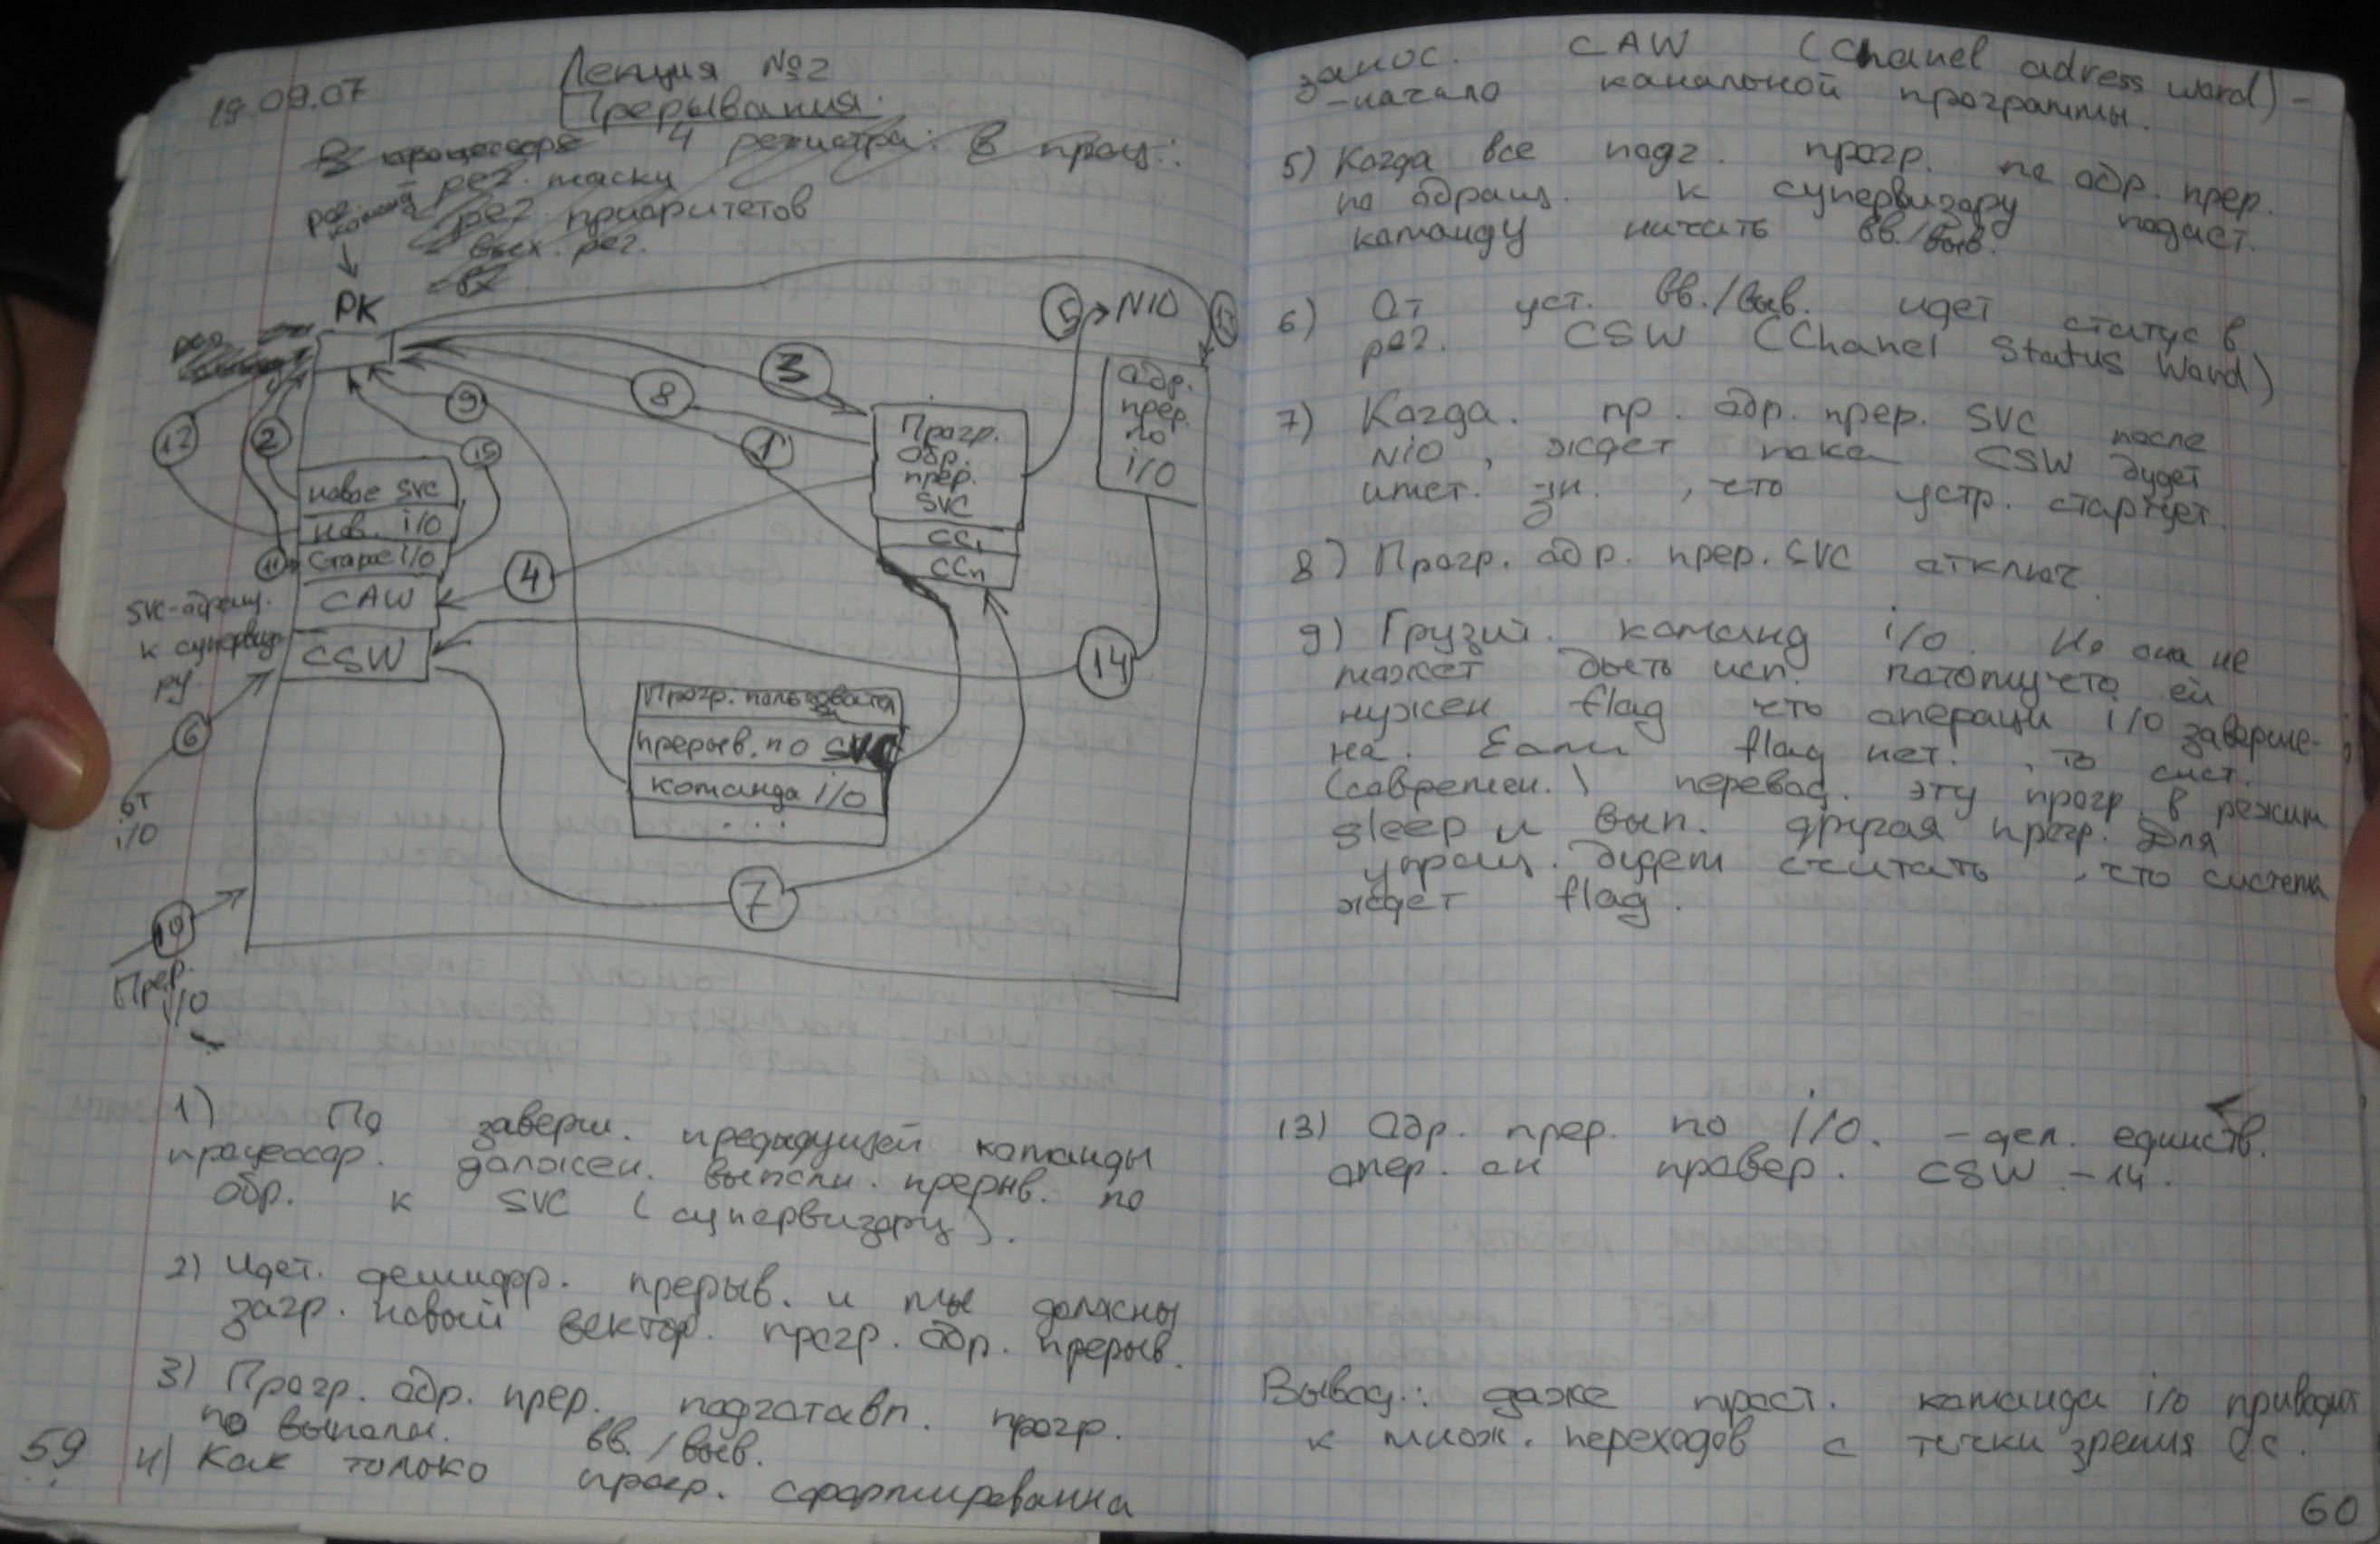 19.09.07
Лекция №2
Прерывания.
В процессоре 4 регистра: В проц.:
рег. маски
рег. команд
рег. приоритетов
вых. рег.
РК
5 NIO
3
8
9
1
12
2
15
Прогр.
обр.
прер.
SVC
СС1
ССn
обр.
прер.
по
i/O
новое SVC
нов. i/O
11 Старое i/O
CAW
CSW
4
14
SVC-обращ.
к суперви
ру
6
от
i/O
Прогр. пользователя
прерыв. по SVC
команда i/O
...
7
10
Прер.
i/O
1) По заверш. предыдущей команды
процессор. должен. выполн. прерыв. по
обр. к SVC (супервизору).
2) Идет. дешифр. прерыв. и мы должны
загр. новый вектор. прогр. обр. прерыв.
3) Прогр. обр. прер. подготавл. прогр.
по выполн. вв./выв.
4) Как только прогр. сформированна
59
занос. CAW (Chanel adress word) -
-начало канальной программы.
5) Когда все подг. прогр. по обр. прер.
по обращ. к супервизору подаст.
команду начать вв./выв.
6) От уст. вв./выв. идет статус в
рег. CSW (Chanel Status Word)
7) Когда. пр. обр. прер. SVC после
NIO, ждет пока CSW будет
имет. зн., что устр. стартует.
8) Прогр. обр. прер. SVC отключ.
9) Грузит. команд i/O. Но она не
может быть исп. потомучто ей
нужен flag что операци i/O заверше-
на. Если flag нет!, то сист.
(современ.) перевод. эту прогр. в режим
sleep и вып. другая прогр. Для
упрощ. будем считать, что система
ждет flag.
13) Обр. прер. по i/O. - дел. единств.
опер. он провер. CSW - 14.
Вывод.: даже прост. команда i/O приводит
к множ. переходов с точки зрения ОС.
60